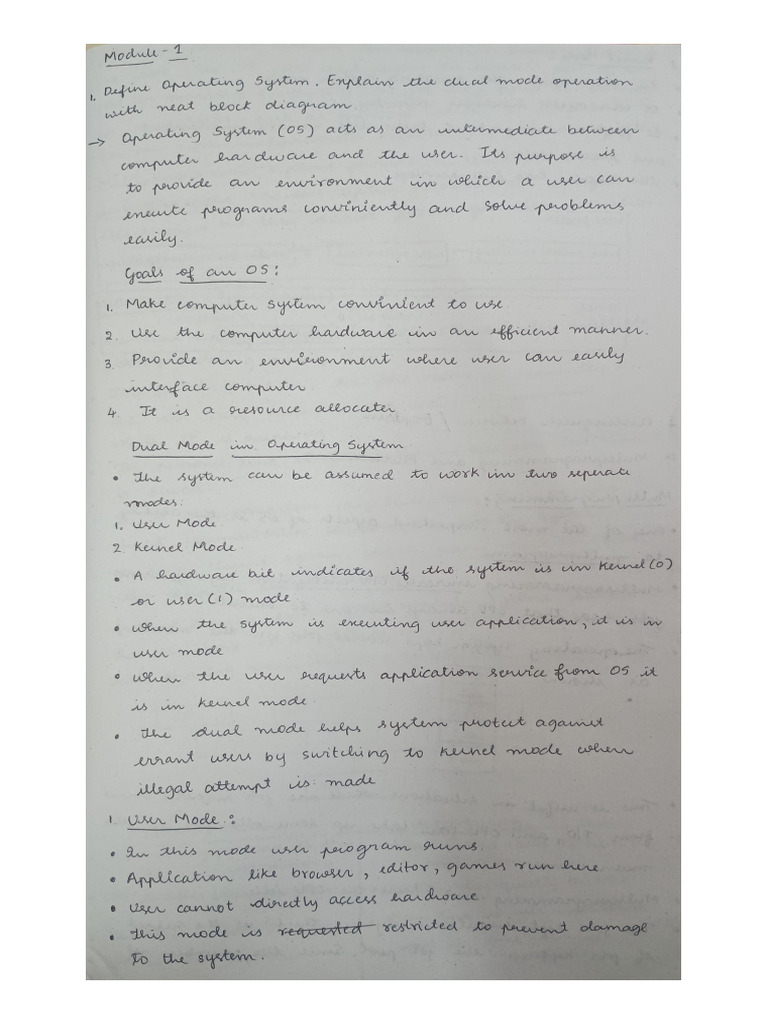 Module - 1
1. Define Operating System. Explain the dual mode operation
with neat block diagram
→ Operating System (OS) acts as an intermediate between
computer hardware and the user. Its purpose is
to provide an environment in which a user can
execute programs conviniently and solve problems
easily.
Goals of an OS :
1. Make computer system convinient to use
2. Use the computer hardware in an efficient manner.
3. Provide an environment where user can easily
interface computer
4. It is a resource allocater
Dual Mode in Operating System
• The system can be assumed to work in two seperate
modes.
1. User Mode
2. Kernel Mode
• A hardware bit indicates if the system is in kernel (0)
or user (1) mode
• When the system is executing user application, it is in
user mode
• When the user requests application service from OS it
is in kernel mode
• The dual mode helps system protect against
errant users by switching to kernel mode when
illegal attempt is made
1. User Mode :
• In this mode user program runs.
• Application like browser, editor, games run here
• User cannot directly access hardware
• This mode is requested restricted to prevent damage
to the system.